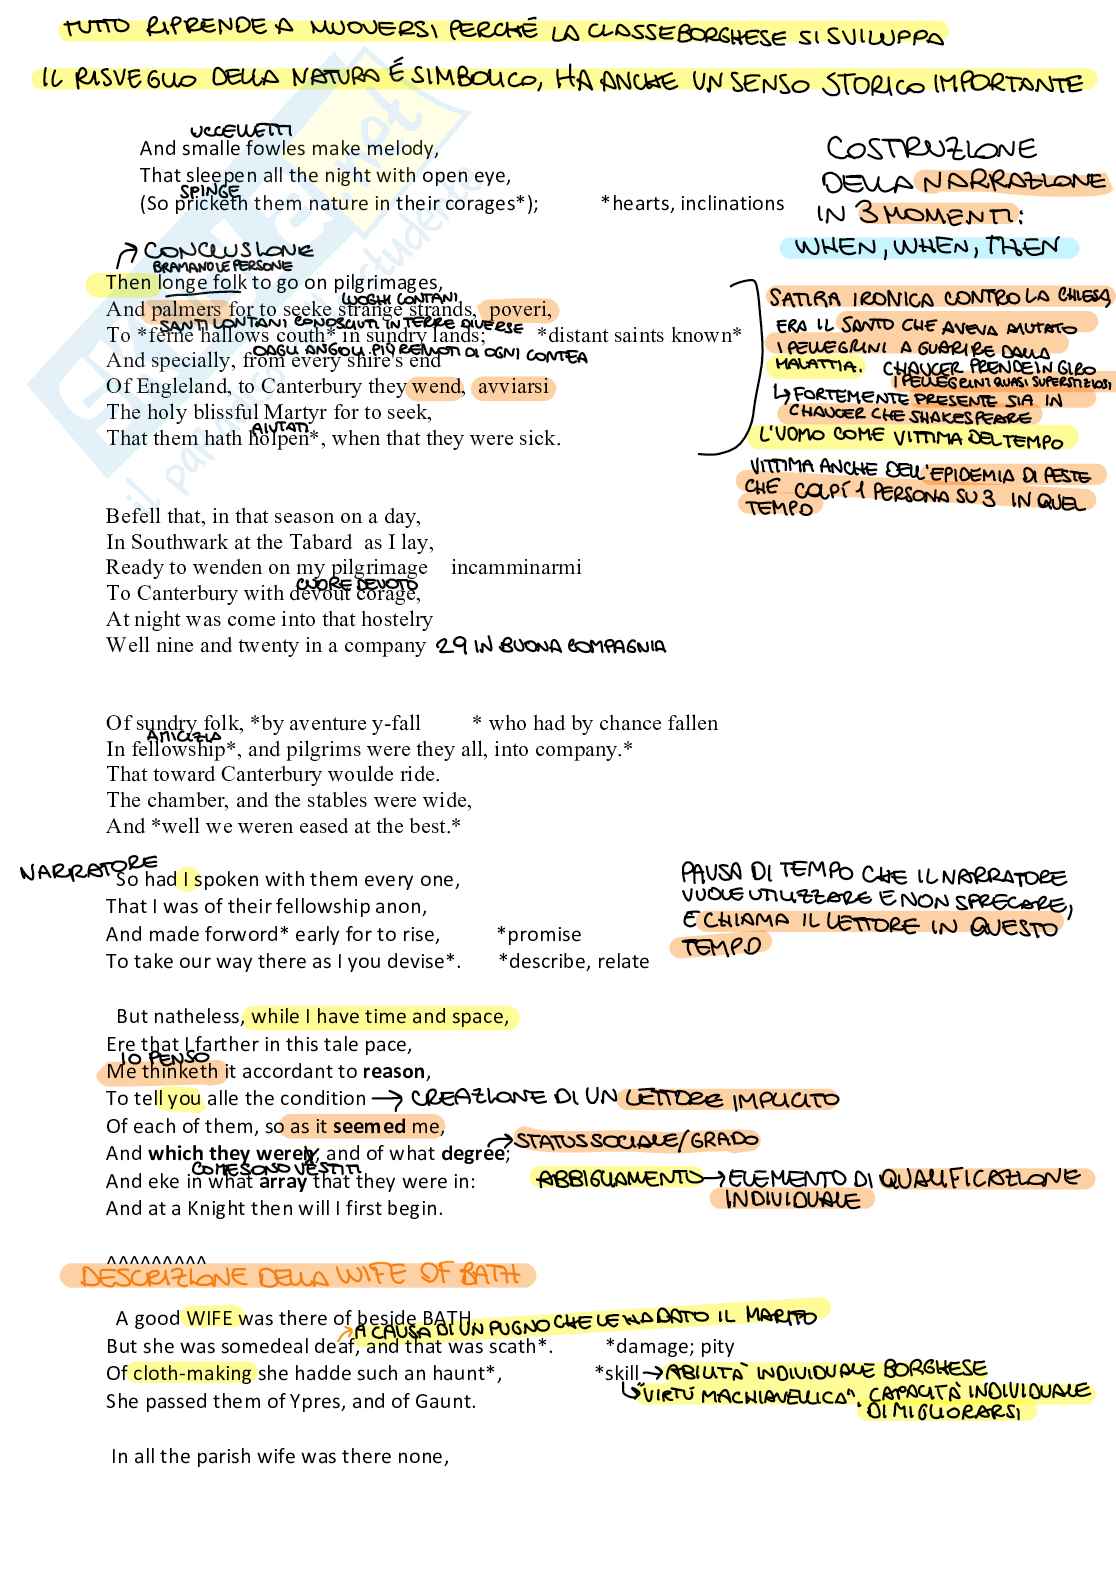 TUTTO RIPRENDE A MUOVERSI PERCHÉ LA CLASSE BORGHESE SI SVILUPPA
IL RISVEGLIO DELLA NATURA É SIMBOLICO, HA ANCHE UN SENSO STORICO IMPORTANTE
UCCELLETTI
And smalle fowles make melody,
That sleepen all the night with open eye,
SPINGE
(So pricketh them nature in their corages*); *hearts, inclinations
COSTRUZIONE
DELLA NARRAZIONE
IN 3 MOMENTI:
WHEN, WHEN, THEN
CONCLUSIONE
BRAMANO LE PERSONE
Then longe folk to go on pilgrimages,
LUOGHI LONTANI
And palmers for to seeke strange strands, poveri,
SANTI LONTANI CONOSCIUTI IN TERRE DIVERSE
To *ferne hallows couth* in sundry lands; *distant saints known*
DAGLI ANGOLI PIÙ REMOTI DI OGNI CONTEA
And specially, from every shire's end
Of Engleland, to Canterbury they wend, avviarsi
The holy blissful Martyr for to seek,
AIUTATI
That them hath holpen*, when that they were sick.
SATIRA IRONICA CONTRO LA CHIESA,
ERA IL SANTO CHE AVEVA AIUTATO
I PELLEGRINI A GUARIRE DALLA
MALATTIA. CHAUCER PRENDE IN GIRO
I PELLEGRINI QUASI SUPERSTIZIOSI
↳ FORTEMENTE PRESENTE SIA IN
CHAUCER CHE SHAKESPEARE
L'UOMO COME VITTIMA DEL TEMPO
VITTIMA ANCHE DELL'EPIDEMIA DI PESTE
CHE COLPÍ 1 PERSONA SU 3 IN QUEL
TEMPO
Befell that, in that season on a day,
In Southwark at the Tabard as I lay,
Ready to wenden on my pilgrimage incamminarmi
CUORE DEVOTO
To Canterbury with devout corage,
At night was come into that hostelry
Well nine and twenty in a company 29 IN BUONA COMPAGNIA
Of sundry folk, *by aventure y-fall * who had by chance fallen
AMICIZIA
In fellowship*, and pilgrims were they all, into company.*
That toward Canterbury woulde ride.
The chamber, and the stables were wide,
And *well we weren eased at the best.*
NARRATORE
So had I spoken with them every one,
That I was of their fellowship anon,
And made forword* early for to rise, *promise
To take our way there as I you devise*. *describe, relate
PAUSA DI TEMPO CHE IL NARRATORE
VUOLE UTILIZZARE E NON SPRECARE,
E CHIAMA IL LETTORE IN QUESTO
TEMPO
But natheless, while I have time and space,
Ere that I farther in this tale pace,
IO PENSO
Me thinketh it accordant to reason,
To tell you alle the condition → CREAZIONE DI UN LETTORE IMPLICITO
Of each of them, so as it seemed me,
And which they weren, and of what degree; → STATUS SOCIALE/GRADO
COME SONO VESTITI
And eke in what array that they were in: ABBIGLIAMENTO → ELEMENTO DI QUALIFICAZIONE
INDIVIDUALE
And at a Knight then will I first begin.
^^^^^^^^^
DESCRIZIONE DELLA WIFE OF BATH
A good WIFE was there of beside BATH,
A CAUSA DI UN PUGNO CHE LE HA DATO IL MARITO
But she was somedeal deaf, and that was scath*. *damage; pity
Of cloth-making she hadde such an haunt*, *skill → ABILITÀ INDIVIDUALE BORGHESE
↳ "VIRTÙ MACHIAVELLICA". CAPACITÀ INDIVIDUALE
DI MIGLIORARSI
She passed them of Ypres, and of Gaunt.
In all the parish wife was there none,